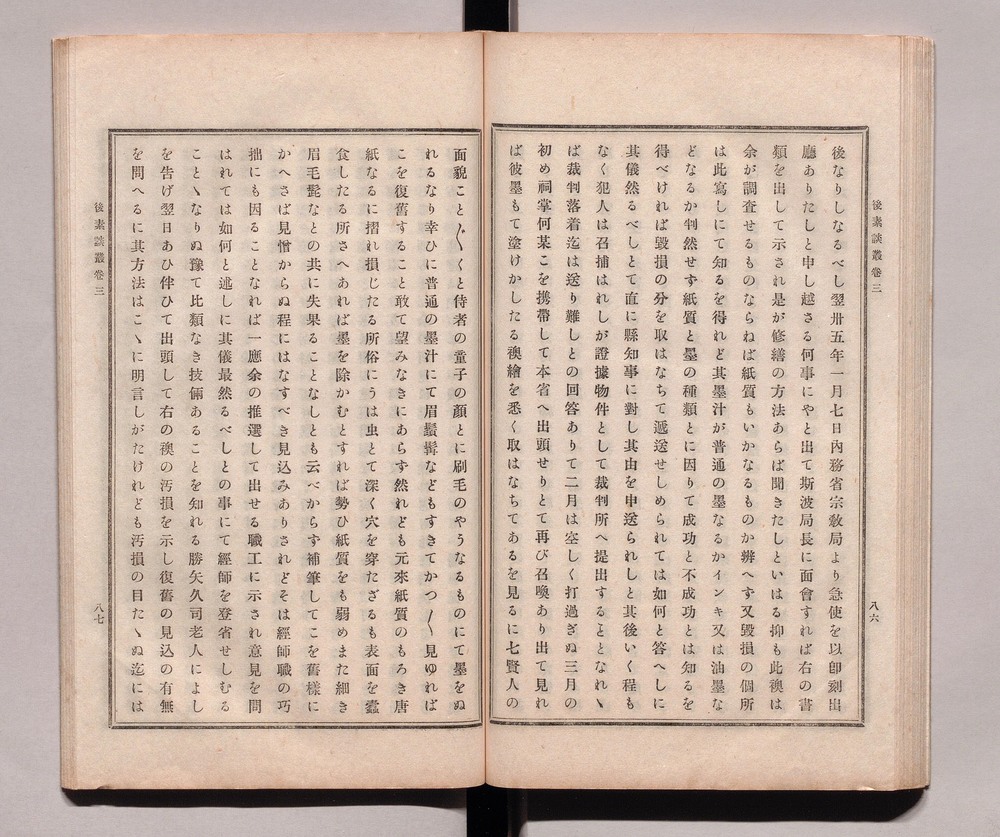 後素談叢卷三
八六
後なりしなるべし翌卅五年一月七日內務省宗敎局より急使を以卽刻出
廳ありたしと申し越さる何事にやと出て斯波局長に面會すれば右の書
類を出して示され是が修繕の方法あらば聞きたしといはる抑も此襖は
余が調査せるものならねば紙質もいかなるものか辨へす又毀損の個所
は此寫しにて知るを得れど其墨汁が普通の墨なるかインキ又は油墨な
どなるか判然せす紙質と墨の種類とに因りて成功と不成功とは知るを
得べければ毀損の分を取はなちて遞送せしめられては如何と答へしに
其儀然るべしとて直に縣知事に對し其由を申送られしと其後いく程も
なく犯人は召捕はれしが證據物件として裁判所へ提出することとなれヽ
ば裁判落着迄は送り難しとの回答ありて二月は空しく打過ぎぬ三月の
初め祠掌何某こを携帶して本省へ出頭せりとて再び召喚あり出て見れ
ば彼墨もて塗けかしたる襖繪を悉く取はなちてあるを見るに七賢人の
面貌こと〴〵くと侍者の童子の顔とに刷毛のやうなるものにて墨をぬ
れるなり幸ひに普通の墨汁にて眉鬚髯などもすきてかつ〳〵見ゆれば
こを復舊すること敢て望みなきにあらす然れども元來紙質のもろき唐
紙なるに摺れ損じたる所俗にうは虫とて深く穴を穿たざるも表面を蠹
食したる所さへあれば墨を除かむとすれば勢ひ紙質をも弱めまた細き
眉毛髭などの共に失果ることなしとも云べからす補筆してこを舊樣に
かへさば見憎からぬ程にはなすべき見込みありされどそは經師職の巧
拙にも因ることなれば一應余の推選して出せる職工に示され意見を問
はれては如何と述しに其儀最然るべしとの事にて經師を登省せしむる
ことヽなりぬ豫て比類なき技倆あることを知れる勝矢久司老人によし
を告げ翌日あひ伴ひて出頭して右の襖の汚損を示し復舊の見込の有無
を問へるに其方法はこヽに明言しがたけれども汚損の目たヽぬ迄には
後素談叢卷三
八七